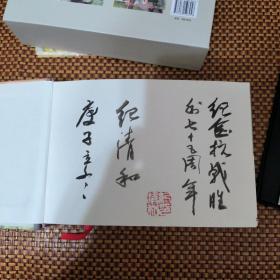 纪念抗战胜
利七十五周年
纪清和
庚子